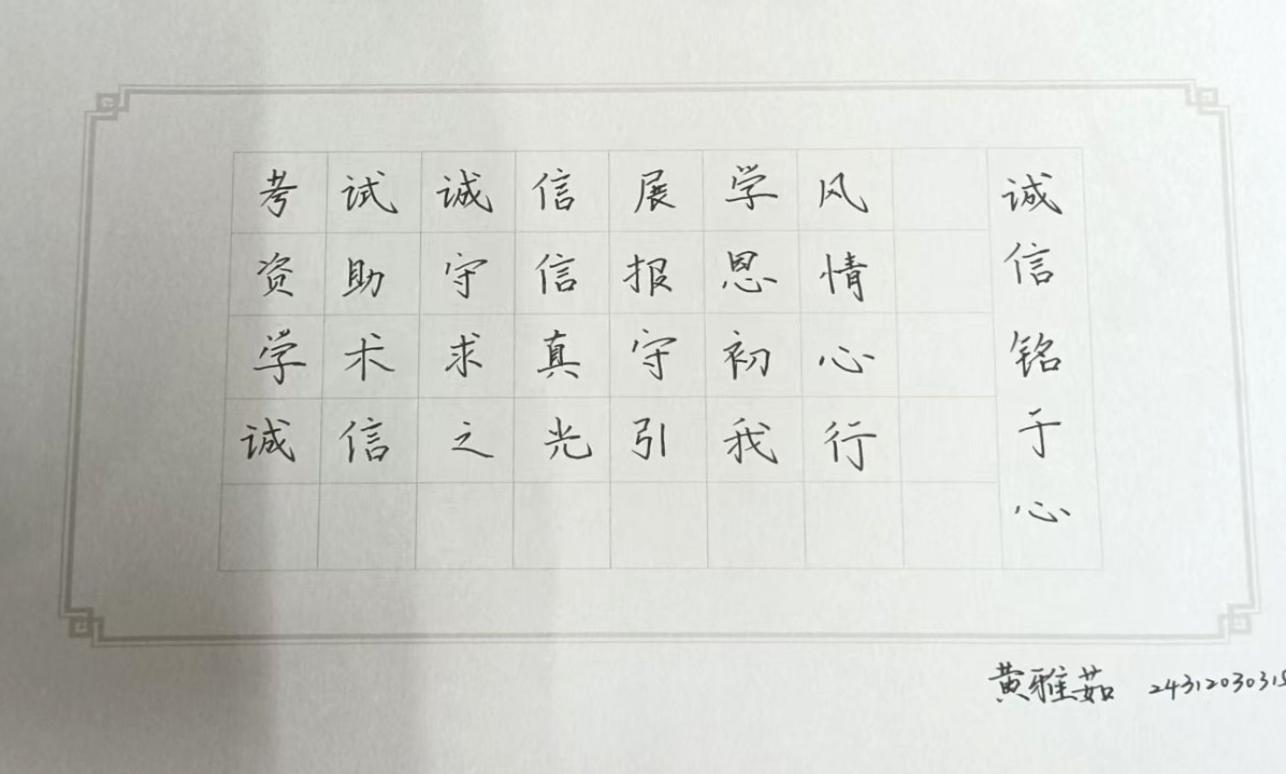 诚信铭于心
考试诚信展学风
资助守信报恩情
学术求真守初心
诚信之光引我行
黄雅茹 24312030315